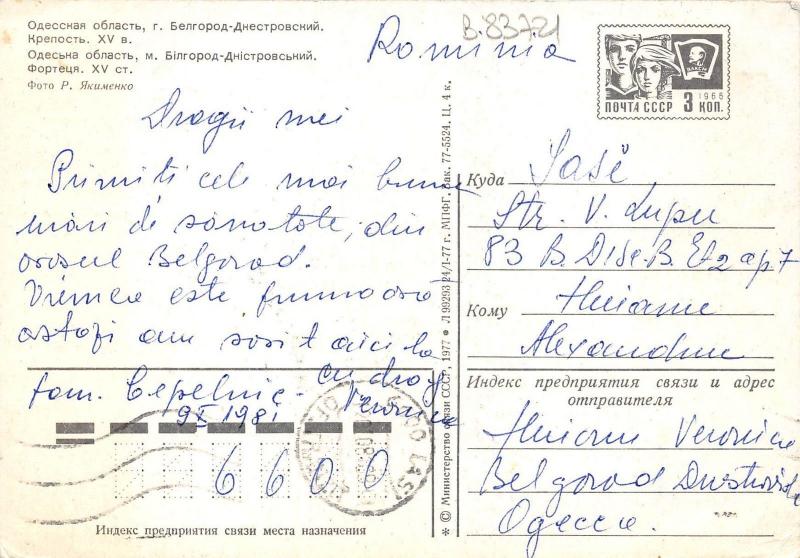 Одесская область, г. Белгород-Днестровский.
Крепость. XV в.
Одеська область, м. Білгород-Дністровський.
Фортеця. XV ст.
Фото Р. Якименко
B.83721
Romînia
ПОЧТА СССР 3 КОП.
1966
ВЛКСМ
Dragii mei
Primiti cele mai bune
urari de sanatate, din
orasul Belgorad.
Vremea este frumoasă
astazi am sosit aici la
fam. Cepelnic
cu drag
Veronica
9 X 1981
6600
Индекс предприятия связи места назначения
* © Министерство связи СССР, 1977 * Л 99293 24/I-77 г. МПФГ. Зак. 77-5524. Ц. 4 к.
Куда Iasi
Str. V. Lupu
83 B. D1 Sc. B. Et 2 ap. 7
Кому
Alexandru
Индекс предприятия связи и адрес
отправителя
Veronica
Belgorad
Одесса.